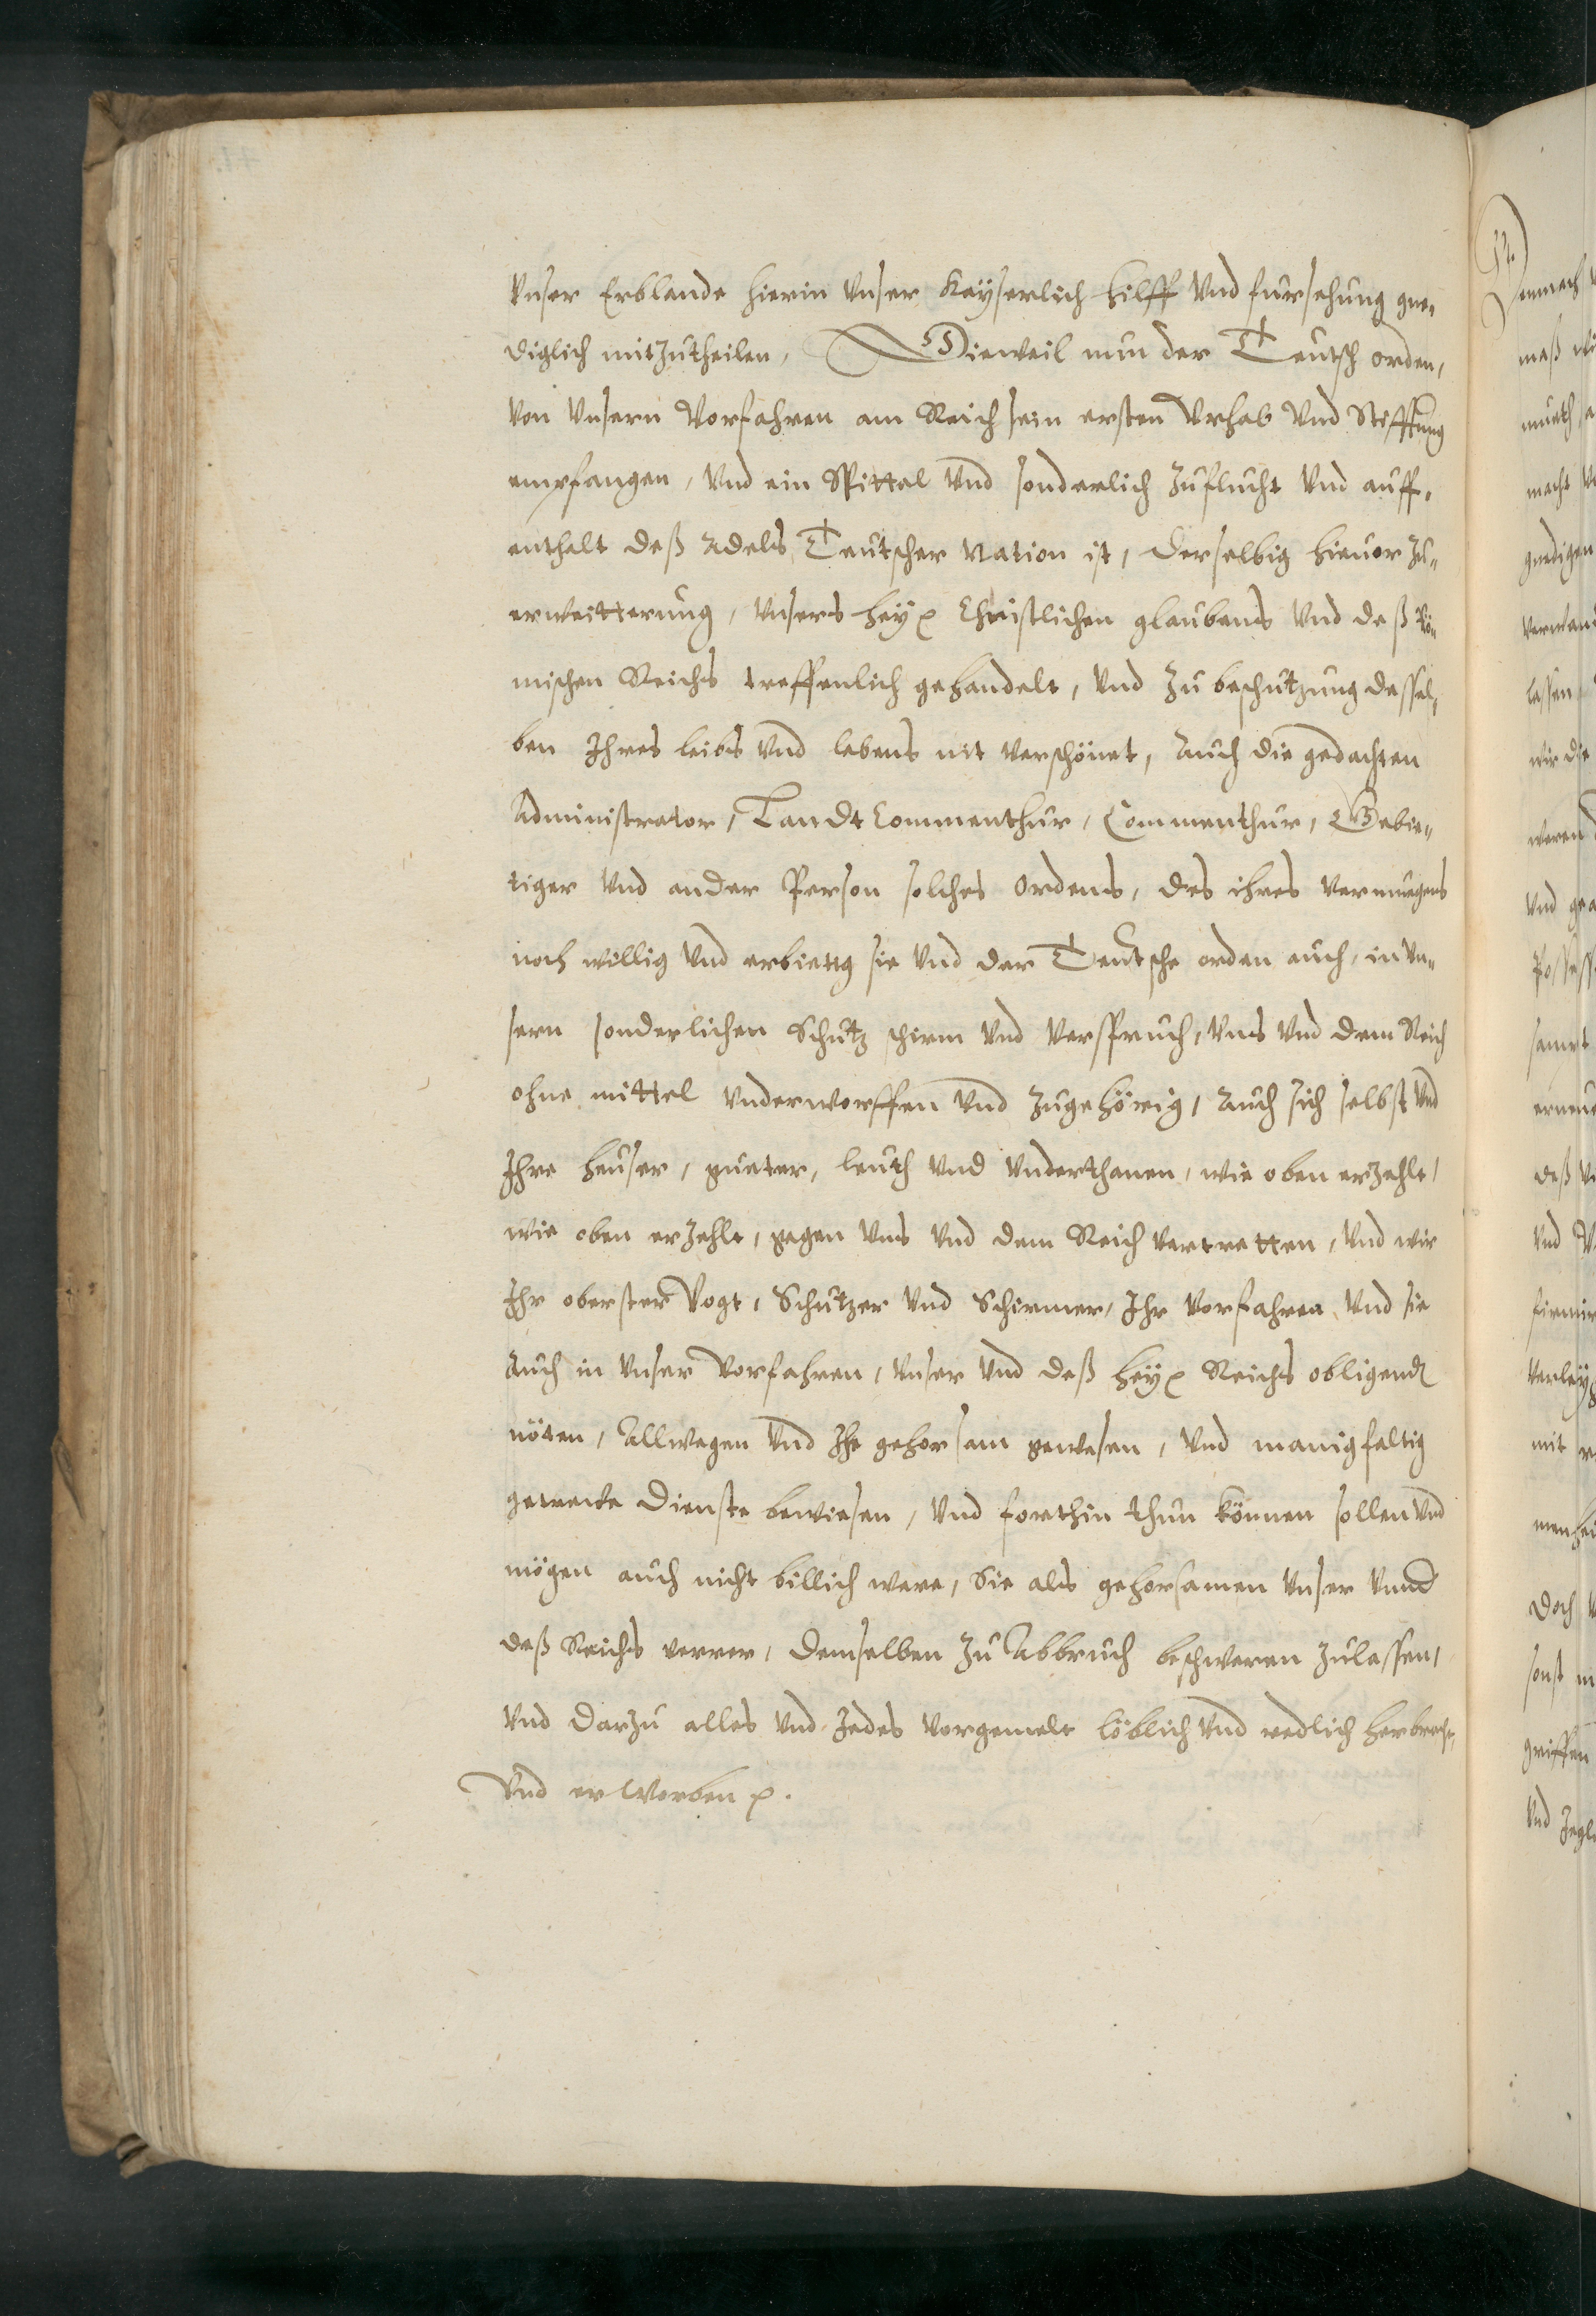 Vnser Erblande hierin Vnser Kayserlich hilff Vnd fursehung gne-
diglich mitzutheilen, Dieweil nun der Teutsch orden,
Von Vnsern Vorfahren am Reich sein ersten Vrhab Vnd Stifftung
empfangen, Vnd ein Spittal Vnd sonderlich Zuflucht Vnd auff-
enthalt deß Adels Teutscher Nation ist, Derselbig hieuor Zu-
erweitterung, Vnsers heyl Christlichen glaubens Vnd deß Rö-
mischen Reichs treffenlich gehandelt, Vnd Zu beschutzung dessel-
ben Ihres leibs Vnd lebens nit Verschönet, Auch die gedachten
Administrator, Landt Commenthur, Commenthur, Gebie-
tiger Vnd ander Person solches ordens, des ihres Vermuegens
noch willig Vnd erbiettig sie Vnd der Teutsche orden auch, in Vn-
sern sonderlichen Schutz schirm Vnd Verspruch, Vns Vnd dem Reich
ohne mittel Vnderworffen Vnd Zugehörig, Auch sich selbst Vnd
Ihre heuser, gueter, leuth Vnd Vnderthanen, wie oben erzehlt,
wie oben erzehlt, gegen Vns Vnd dem Reich Vertretten, Vnd wir
Ihr oberster Vogt, Schutzer Vnd Schirmer, Ihr Vorfahren Vnd sie
Auch in Vnser Vorfahren, Vnser Vnd deß heyl Reichs obligenden
nöten, Allwegen Vnd Ihe gehorsam gewesen, Vnd manigfaltig
getreue Dienste bewiesen, Vnd forthin thun können sollen Vnd
mögen auch nicht billich were, Sie als gehorsamen Vnser Vnnd
deß Reichs demselben Zu Abbruch beschweren Zulassen,
Vnd darzu alles Vnd Jedes Vorgemelt löblich Vnd redlich herbracht,
Vnd erworben